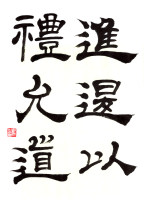 進退以
禮允道